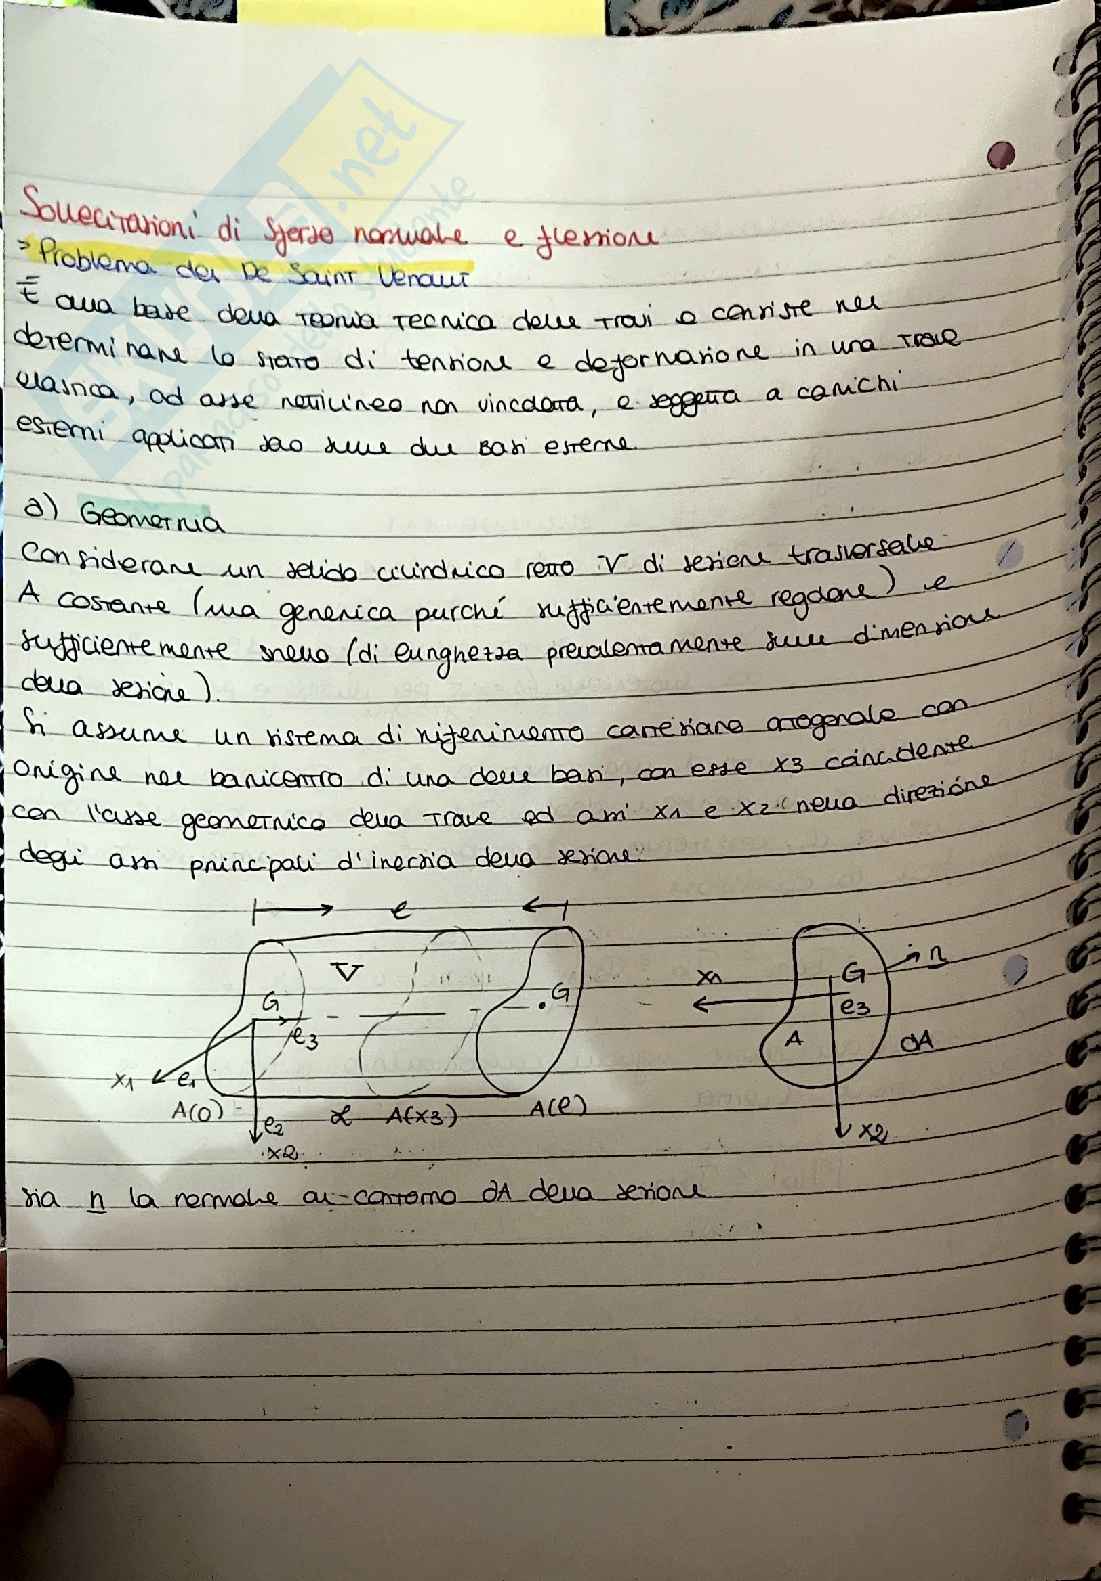 Sollecitazioni di sforzo normale e flessione
→ Problema del De Saint Venant
È alla base della Teoria Tecnica delle Travi e consiste nel
determinare lo stato di tensione e deformazione in una trave
elastica, ad asse rettilineo non vincolata, e soggetta a carichi
esterni applicati solo sulle due basi esterne.
a) Geometria
Considerare un solido cilindrico retto V di sezione trasversale
A costante (ma generica purché sufficientemente regolare) e
sufficientemente snello (di lunghezza prevalentemente sulle dimensioni
della sezione).
Si assume un sistema di riferimento cartesiano ortogonale con
origine nel baricentro di una delle basi, con asse x3 coincidente
con l'asse geometrico della trave ed assi x1 e x2 (nella direzione
degli assi principali d'inerzia della sezione.
l
V
G
G
e3
x1
e1
A(0)
e2
x2
L
A(x3)
A(l)
n
x1
G
e3
A
∂A
x2
sia n la normale al contorno ∂A della sezione
SKUOLA.net
il paradiso dello studente